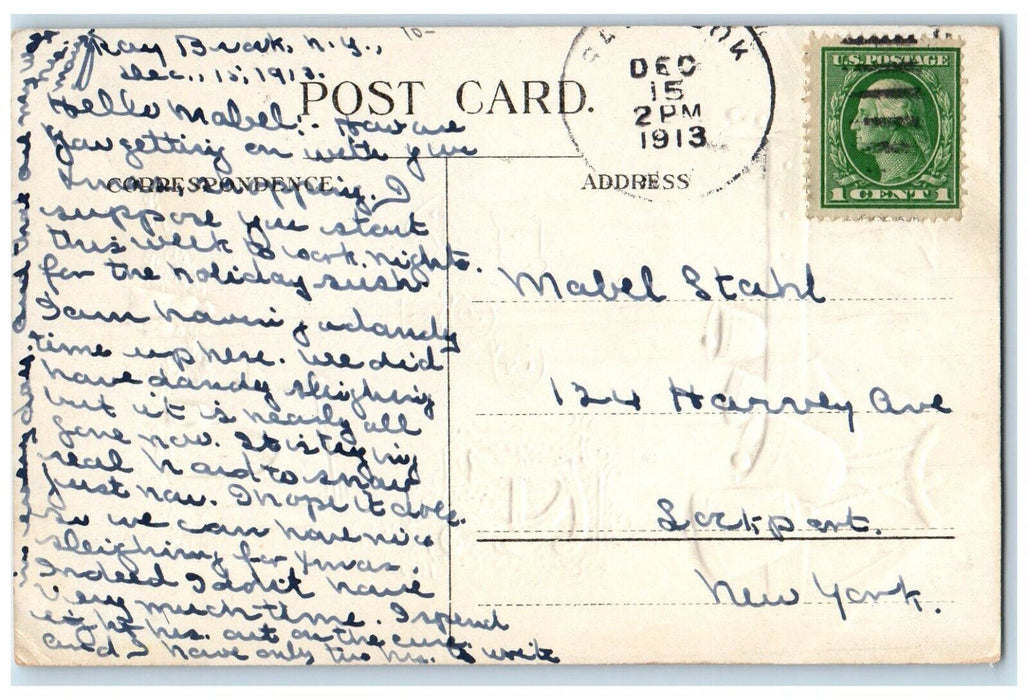 Ray Brook, N.Y.,
Dec., 15, 1913.
POST CARD.
DEC
15
2 PM
1913
U.S. POSTAGE
1 CENT 1
CORRESPONDENCE
ADDRESS
Hello Mabel:- How are
you getting on with your
Xmas shopping. I
suppose you start
this week to work nights
for the holiday rush.
I am having a dandy
time up here. We did
have dandy sleighing
but it is nearly all
gone now. It is trying
real hard to snow
just now. I hope it does
so we can have nice
sleighing for Xmas.
Indeed I don't have
very much time. I spend
eight hrs. out on the cure
and I have only two hrs. to write
Mabel Stahl
124 Harvey Ave
Lockport.
New York.